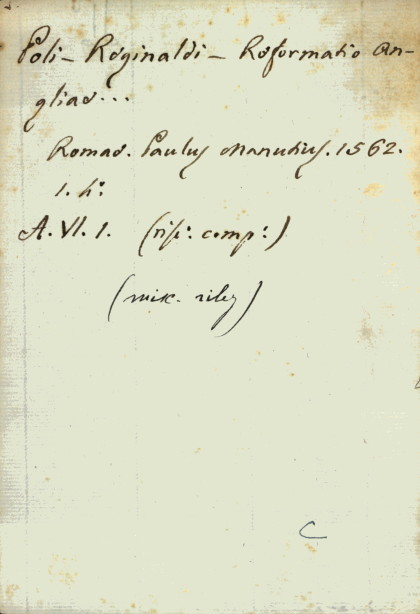 Poli - Reginaldi - Reformatio An-
gliae...
Romae. Paulus Manutius. 1562.
1. h:
A. VI. 1. (risp: comp:)
(misc. rileg)
C